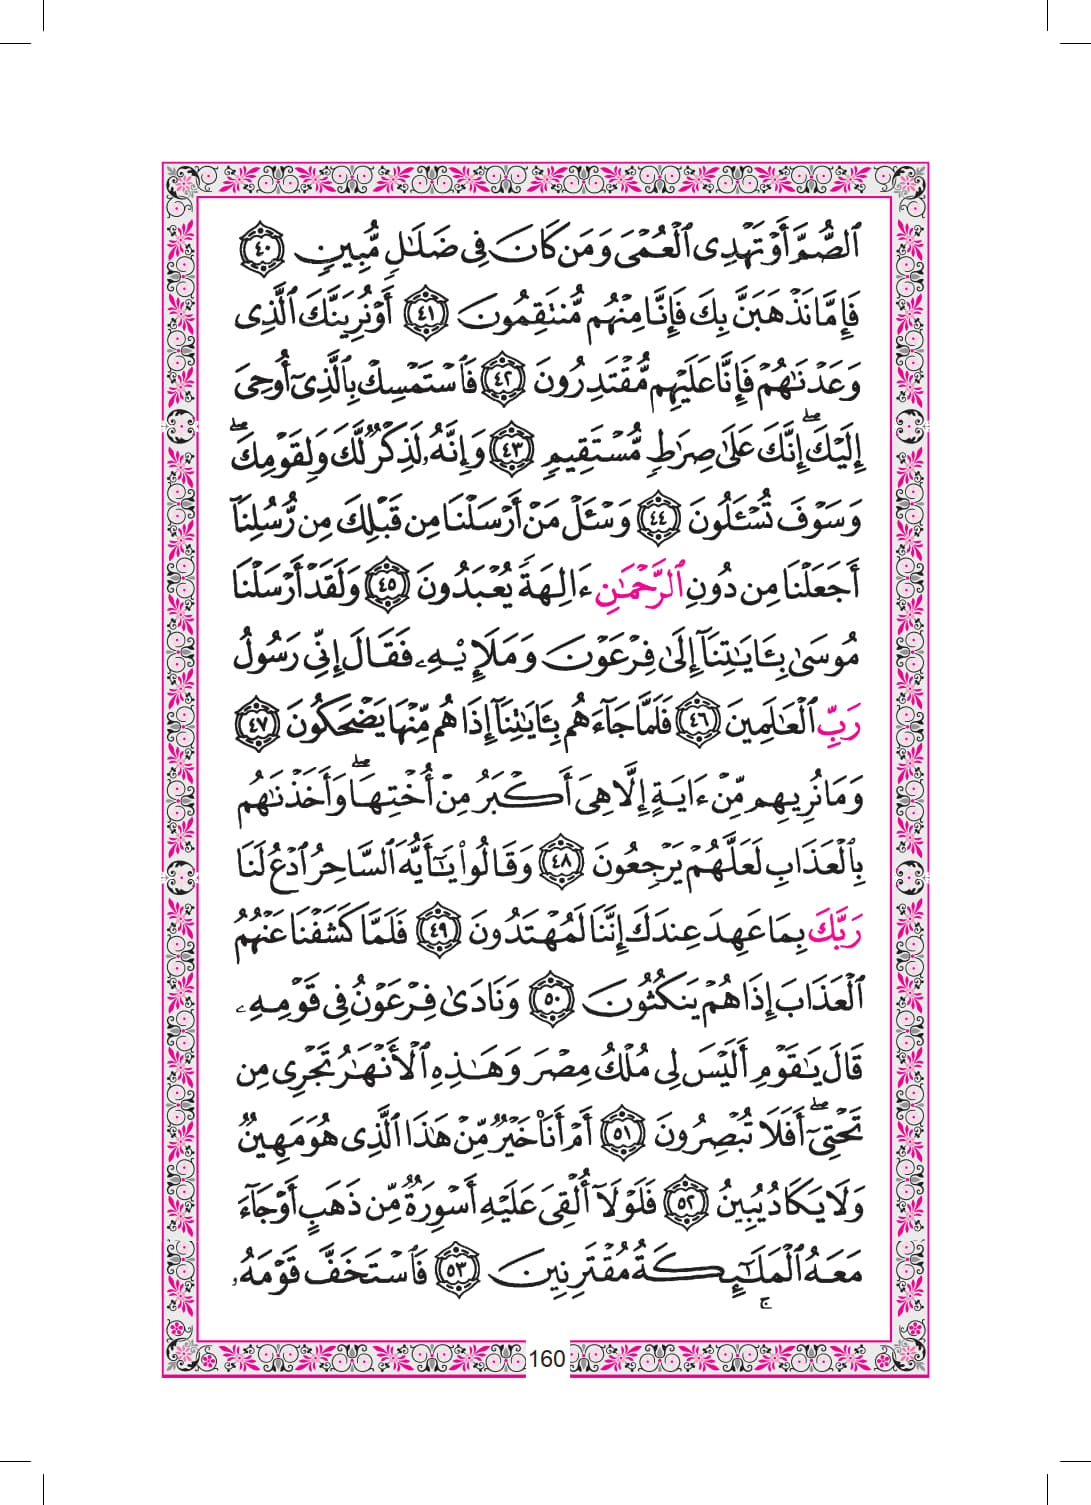 ٱلصُّمَّ أَوْ تَهْدِى ٱلْعُمْىَ وَمَن كَانَ فِى ضَلَـٰلٍ مُّبِينٍ ٤٠
فَإِمَّا نَذْهَبَنَّ بِكَ فَإِنَّا مِنْهُم مُّنتَقِمُونَ ٤١ أَوْ نُرِيَنَّكَ ٱلَّذِى
وَعَدْنَـٰهُمْ فَإِنَّا عَلَيْهِم مُّقْتَدِرُونَ ٤٢ فَٱسْتَمْسِكْ بِٱلَّذِىٓ أُوحِىَ
إِلَيْكَ ۖ إِنَّكَ عَلَىٰ صِرَٰطٍ مُّسْتَقِيمٍ ٤٣ وَإِنَّهُۥ لَذِكْرٌ لَّكَ وَلِقَوْمِكَ ۖ
وَسَوْفَ تُسْـَٔلُونَ ٤٤ وَسْـَٔلْ مَنْ أَرْسَلْنَا مِن قَبْلِكَ مِن رُّسُلِنَآ
أَجَعَلْنَا مِن دُونِ ٱلرَّحْمَـٰنِ ءَالِهَةً يُعْبَدُونَ ٤٥ وَلَقَدْ أَرْسَلْنَا
مُوسَىٰ بِـَٔايَـٰتِنَآ إِلَىٰ فِرْعَوْنَ وَمَلَإِي۟هِۦ فَقَالَ إِنِّى رَسُولُ
رَبِّ ٱلْعَـٰلَمِينَ ٤٦ فَلَمَّا جَآءَهُم بِـَٔايَـٰتِنَآ إِذَا هُم مِّنْهَا يَضْحَكُونَ ٤٧
وَمَا نُرِيهِم مِّنْ ءَايَةٍ إِلَّا هِىَ أَكْبَرُ مِنْ أُخْتِهَا ۖ وَأَخَذْنَـٰهُم
بِٱلْعَذَابِ لَعَلَّهُمْ يَرْجِعُونَ ٤٨ وَقَالُوا۟ يَـٰٓأَيُّهَ ٱلسَّاحِرُ ٱدْعُ لَنَا
رَبَّكَ بِمَا عَهِدَ عِندَكَ إِنَّنَا لَمُهْتَدُونَ ٤٩ فَلَمَّا كَشَفْنَا عَنْهُمُ
ٱلْعَذَابَ إِذَا هُمْ يَنكُثُونَ ٥٠ وَنَادَىٰ فِرْعَوْنُ فِى قَوْمِهِۦ
قَالَ يَـٰقَوْمِ أَلَيْسَ لِى مُلْكُ مِصْرَ وَهَـٰذِهِ ٱلْأَنْهَـٰرُ تَجْرِى مِن
تَحْتِىٓ ۖ أَفَلَا تُبْصِرُونَ ٥١ أَمْ أَنَا۠ خَيْرٌ مِّنْ هَـٰذَا ٱلَّذِى هُوَ مَهِينٌ
وَلَا يَكَادُ يُبِينُ ٥٢ فَلَوْلَآ أُلْقِىَ عَلَيْهِ أَسْوِرَةٌ مِّن ذَهَبٍ أَوْ جَآءَ
مَعَهُ ٱلْمَلَـٰٓئِكَةُ مُقْتَرِنِينَ ٥٣ فَٱسْتَخَفَّ قَوْمَهُۥ
ج
160